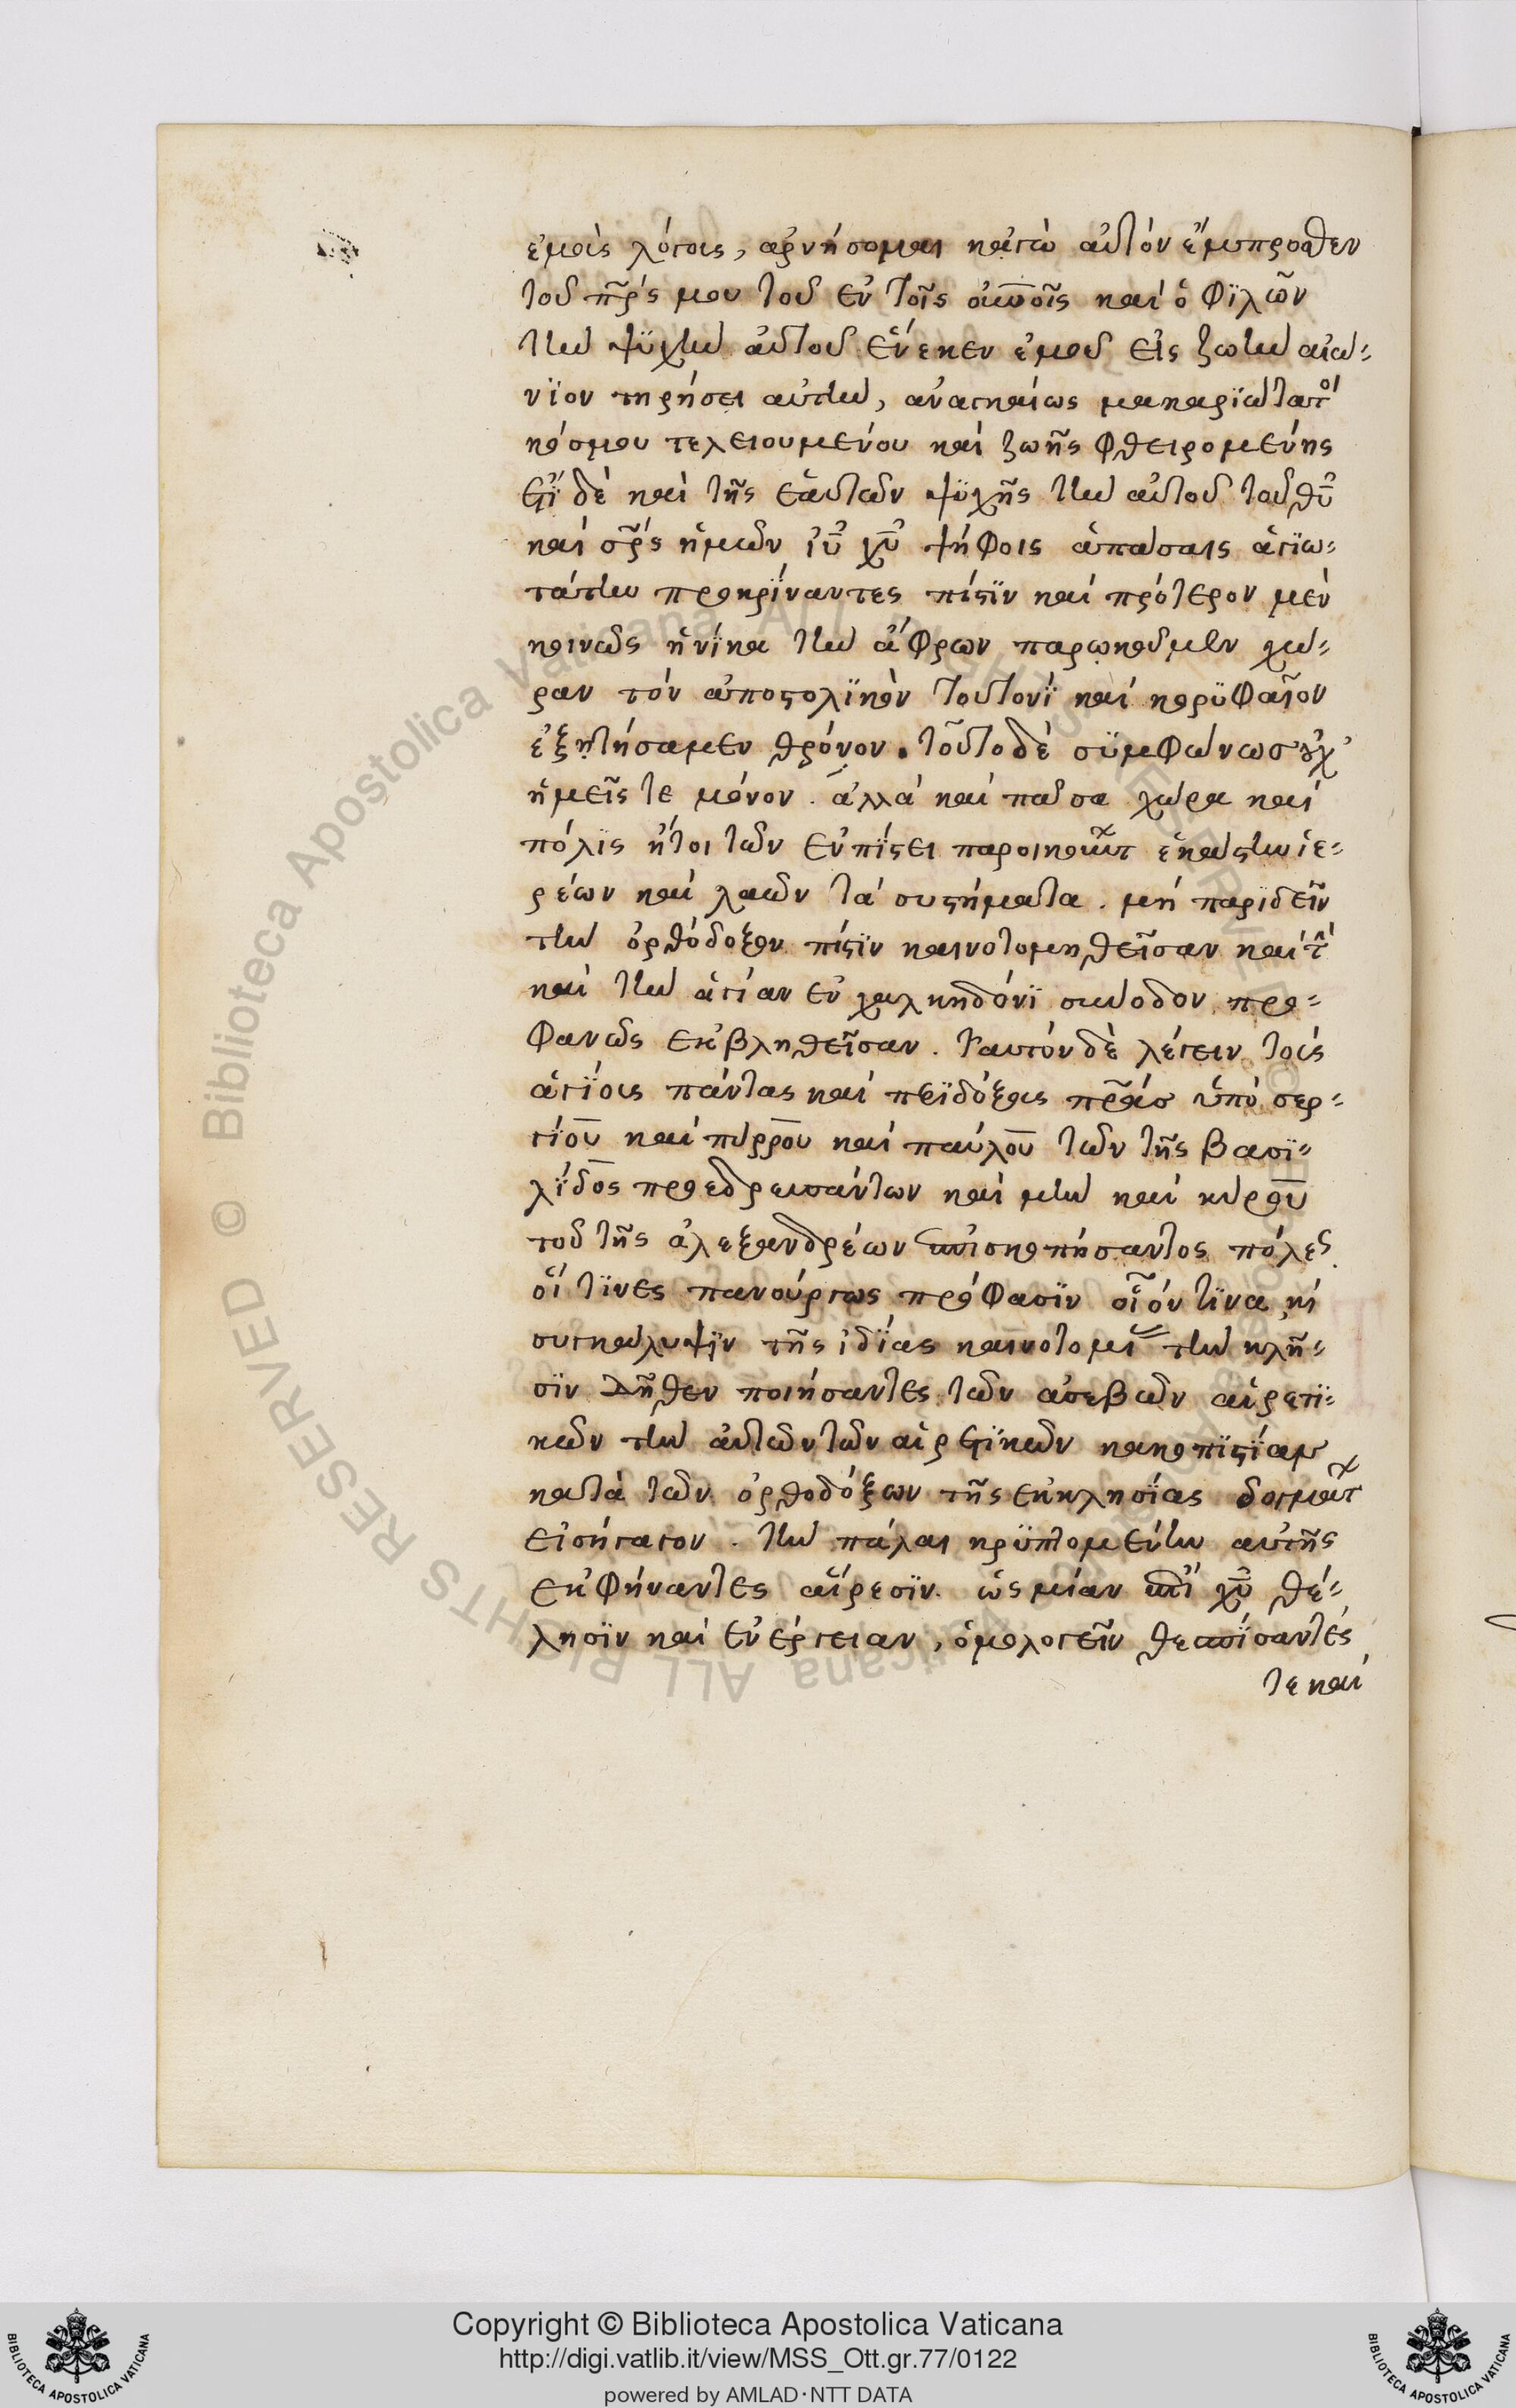 ἐμοὶς λόγοις, ἀρνήσομαι κἀγὼ αὐτὸν ἔμπροσθεν
τοῦ πρς μου τοῦ ἐν τοῖς οὐνοῖς καὶ ὁ φϊλῶν
τὴν ψϋχὴν αὐτοῦ ἕνεκεν ἐμοῦ εἰς ζωὴν αἰώ-
νϊον τηρήσει αὐτὴν, ἀναγκαίως μακαρϊώτατοι
κόσμου τελειουμένου καὶ ζωῆς φθειρομένης
ἔτϊ δὲ καὶ τῆς ἑαυτῶν ψϋχῆς τὴν αὐτοῦ τοῦ θῦ
καὶ σρς ἡμῶν ἰῦ χῦ ψήφοις ἁπάσαις ἁγϊω-
τάτην προκρϊναντες πίστϊν καὶ πρότερον μὲν
κοινῶς ἡνίκα τὴν ἄφρων παρωκοῦμεν χώ-
ραν τὸν ἀποστολϊκὸν τουτονϊ καὶ κορϋφαῖον
ἐξητήσαμεν θρόνον. τοῦτο δὲ σϋμφώνως οὐχ
ἡμεῖς τε μόνον. ἀλλὰ καὶ πᾶσα χώρα καὶ
πόλϊς ἤτοι τῶν ἐν πίστει παροικούντων ἑκάστην ἱε-
ρέων καὶ λαῶν τὰ συστήματα. μὴ παρϊδεῖν
τὴν ὀρθόδοξον πίστϊν καινοτομηθεῖσαν καὶ τὴν
καὶ τὴν ἁγίαν ἐν χαλκηδόνϊ σύνοδον προ-
φανῶς ἐκβληθεῖσαν. ταυτόν δὲ λέγειν τοὺς
ἁγϊους πάντας καὶ περϊδόξους πρας ὑπὸ σερ-
γίου καὶ πύρρου καὶ παύλου τῶν τῆς βασϊ-
λϊδος προεδρευσάντων καὶ μὴν καὶ κύρου
τοῦ τῆς ἀλεξανδρέων ἐπισκοπήσαντος πόλες
οἵ τϊνες πανούργως πρόφασϊν οἷόν τϊνα κὶ
συγκάλυψϊν τῆς ἰδϊας καινοτομί τὴν κλῆ-
σϊν δῆθεν ποιήσαντες τῶν ἀσεβῶν αἱρετϊ-
κῶν τὴν αὐτῶν τῶν αἱρετϊκῶν κακοπϊστϊαν
κατὰ τῶν ὀρθοδόξων τῆς ἐκκλησϊας δογμάτων
εἰσήγαγον. τὴν πάλαι κρϋπτομένην αὐτῆς
ἐκφήναντες αἵρεσϊν. ὡς μίαν ἐπὶ χῦ θέ-
λησϊν καὶ ἐνέργειαν, ὁμολογεῖν θεσπϊσαντές
τε καὶ
Copyright © Biblioteca Apostolica Vaticana
http://digi.vatlib.it/view/MSS_Ott.gr.77/0122
powered by AMLAD·NTT DATA